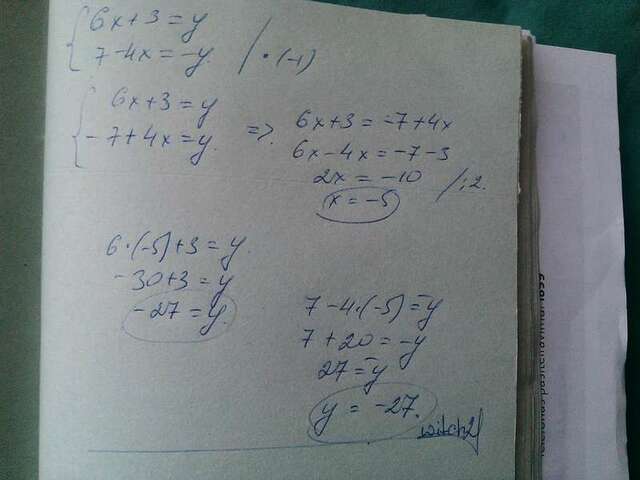 6x+3=y
7-4x=-y /·(-1)
6x+3=y
-7+4x=y. => 6x+3=-7+4x
6x-4x=-7-3
2x=-10 /:2.
x=-5
6·(-5)+3=y.
-30+3=y
-27=y.
7-4·(-5)=-y
7+20=-y
27=-y
y=-27.